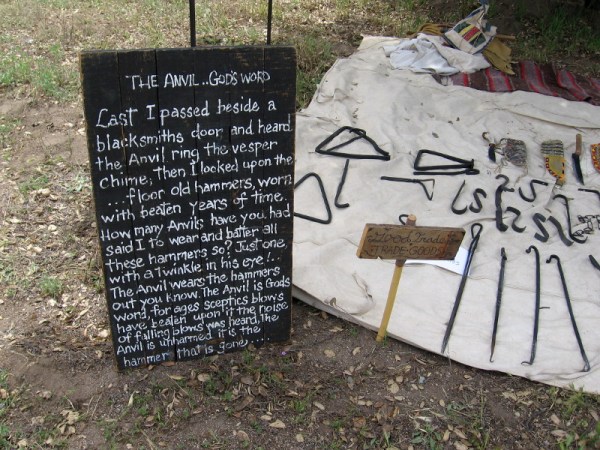 THE ANVIL..GOD'S WORD
Last I passed beside a
blacksmiths door and heard
the Anvil ring the vesper
chime; then I looked upon the
....floor old hammers, worn
with beaten years of time.
How many Anvils have you had
said I to wear and batter all
these hammers so? Just one,
with a Twinkle in his eye!..
The Anvil wears the hammers
out you know. The Anvil is Gods
word, for ages sceptics blows
have beaten upon it the noise
of falling blows was heard, the
Anvil is unharmed it is the
hammer that is gone....